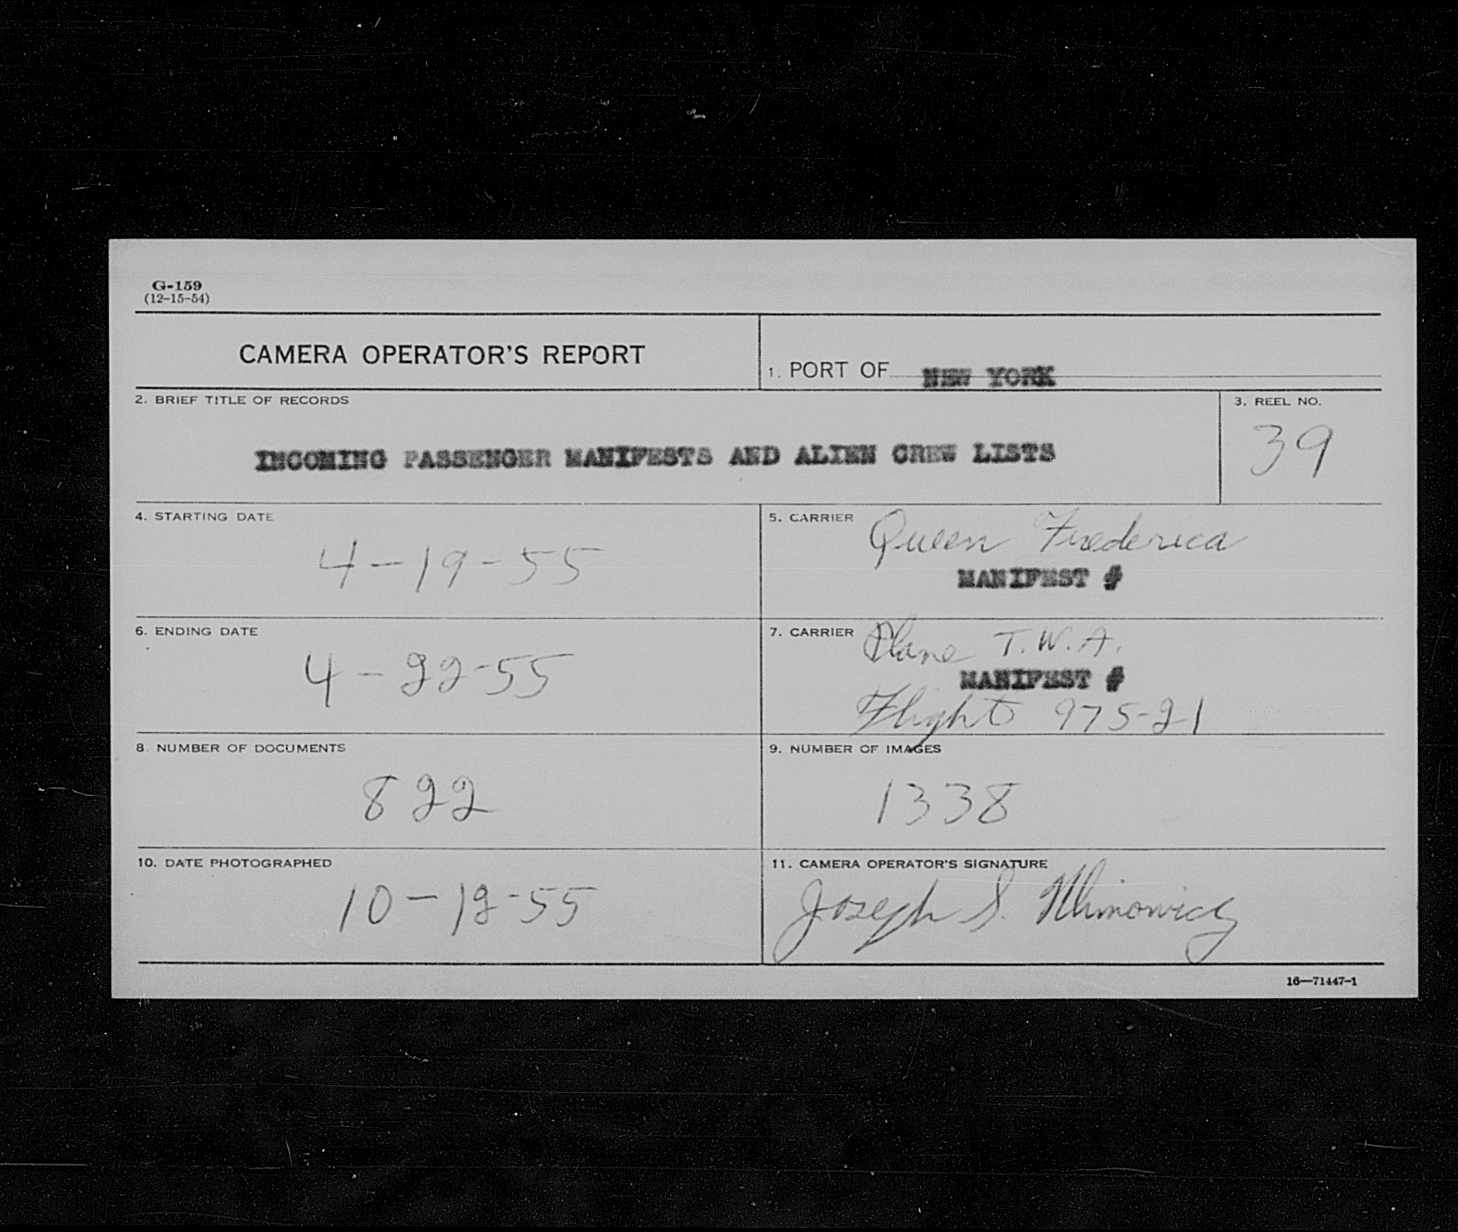 G-159
(12-15-54)
CAMERA OPERATOR'S REPORT
1. PORT OF NEW YORK
2. BRIEF TITLE OF RECORDS
INCOMING PASSENGER MANIFESTS AND ALIEN CREW LISTS
3. REEL NO.
39
4. STARTING DATE
4-19-55
5. CARRIER Queen Frederica
MANIFEST #
6. ENDING DATE
4-22-55
7. CARRIER Plane T.W.A.
MANIFEST #
Flight 975-21
8. NUMBER OF DOCUMENTS
822
9. NUMBER OF IMAGES
1338
10. DATE PHOTOGRAPHED
10-12-55
11. CAMERA OPERATOR'S SIGNATURE
Joseph S.
16—71447-1